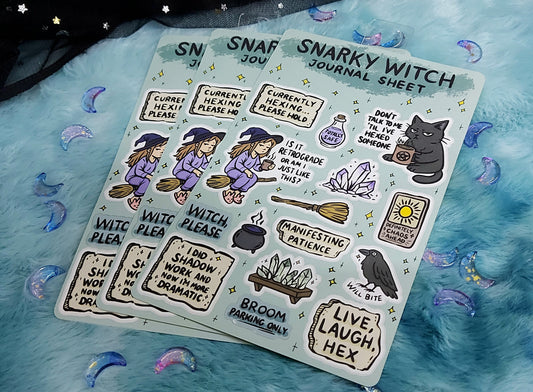 SNARKY WITCH
JOURNAL SHEET
CURRENTLY
HEXING...
PLEASE HOLD
TOTALLY
SAFE
DON'T
TALK TO ME
'TIL I'VE
HEXED
SOMEONE
IS IT
RETROGRADE
OR AM I
JUST LIKE
THIS?
DEFINITELY
CHAOS
AHEAD
WITCH,
PLEASE
MANIFESTING
PATIENCE
WILL BITE
I DID
SHADOW
WORK AND
NOW I'M MORE
DRAMATIC
BROOM
PARKING ONLY
LIVE,
LAUGH,
HEX
SNARKY
JOURNAL
CURRENTLY
HEXING...
PLEASE HOLD
WITCH,
PLEASE
I DID
SHADOW
WORK
NOW I'M
DRAMA
SNARKY
JOUR
CURRENTLY
HEXING...
PLEASE
WITCH,
PLEASE
I DID
SHADOW
WORK
NOW I'M
DRAMA